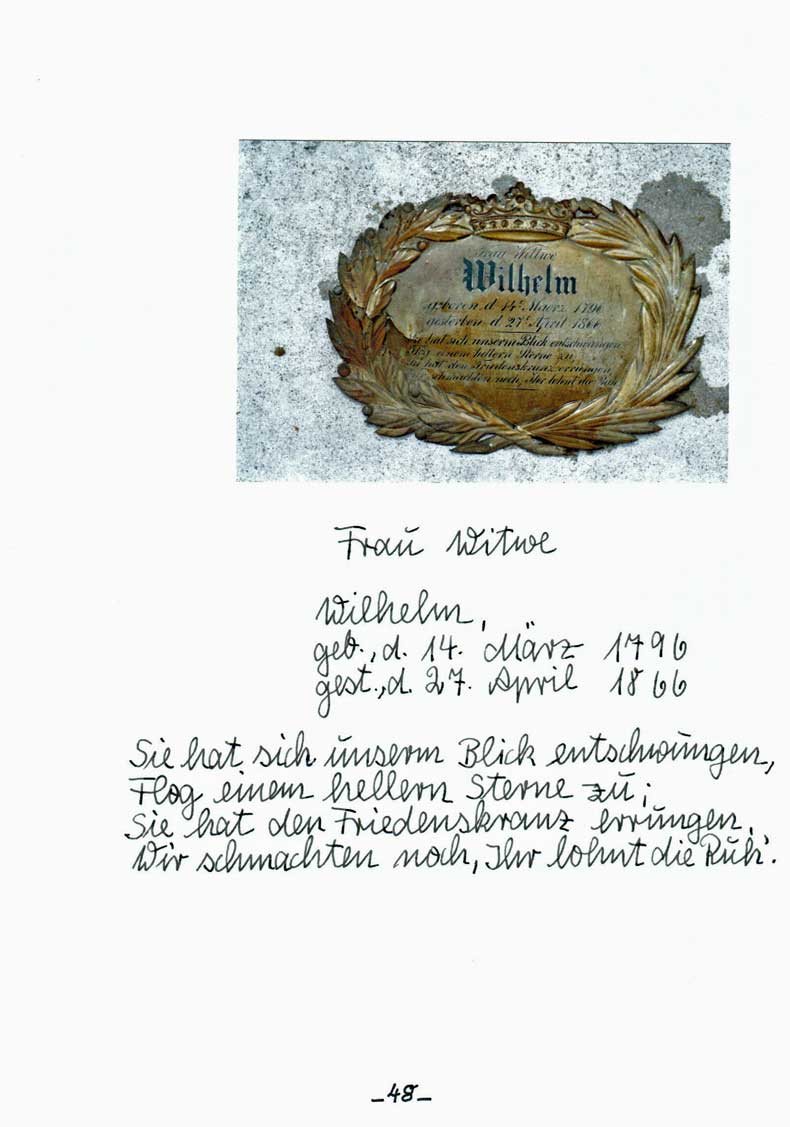 Frau Wittwe
Wilhelm
geboren d. 14t Maerz 1796
gestorben d. 27t April 1866
Sie hat sich unserm Blick entschwungen
Flog einem hellern Sterne zu
Sie hat den Friedenskranz errungen
schmachten noch, Ihr lohnt die Ruh
Frau Witwe
Wilhelm,
geb., d. 14. März 1796
gest., d. 27. April 1866
Sie hat sich unserm Blick entschwungen,
Flog einem hellern Sterne zu;
Sie hat den Friedenskranz errungen,
Wir schmachten noch, Ihr lohnt die Ruh'.
-48-